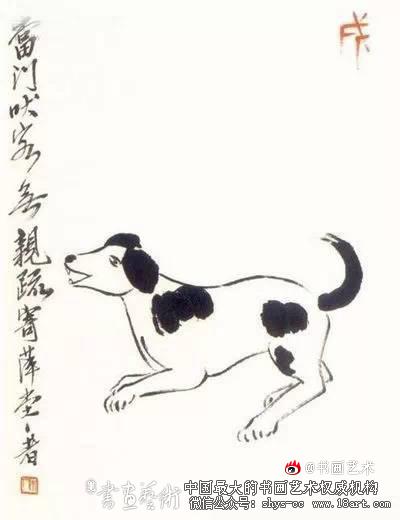 戌
當门吠客無親疏寄萍堂上者
@书画艺术
書畫藝術
中国最大的书画艺术权威机构
微信公众号: shys-cc www.18art.com